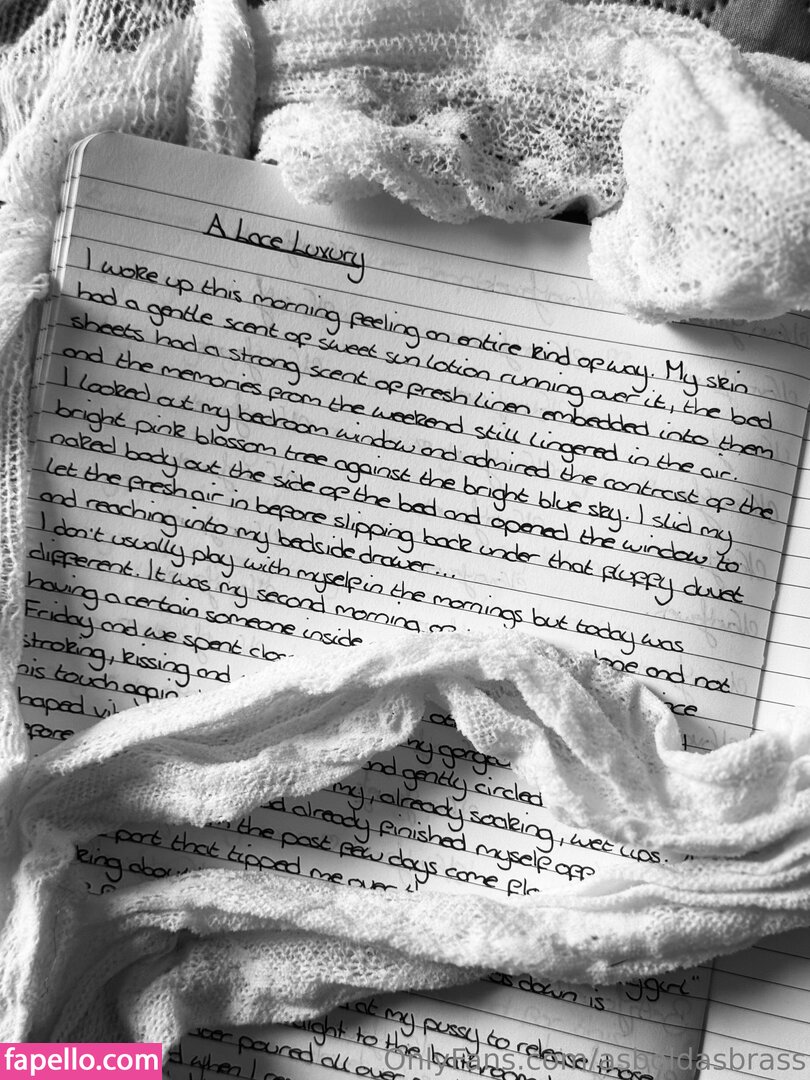 A Lace Luxury
I woke up this morning feeling an entire kind of way. My skin
had a gentle scent of sweet sun lotion running over it, the bed
sheets had a strong scent of fresh linen embedded into them
and the memories from the weekend still lingered in the air.
I looked out my bedroom window and admired the contrast of the
bright pink blossom tree against the bright blue sky. I slid my
naked body out the side of the bed and opened the window to
let the fresh air in before slipping back under that fluffy duvet
and reaching into my bedside drawer...
I don't usually play with myself in the mornings but today was
different. It was my second morning
having a certain someone inside and not
Friday and we spent
stroking, kissing and
his touch again
my
and gently circled
my, already soaking, wet lips.
already finished myself off
the past few days come
part that tipped me over
girl"
down is
at my pussy to
to the
poured all over
when I
fapello.com
OnlyFans.com/asboldasbrass